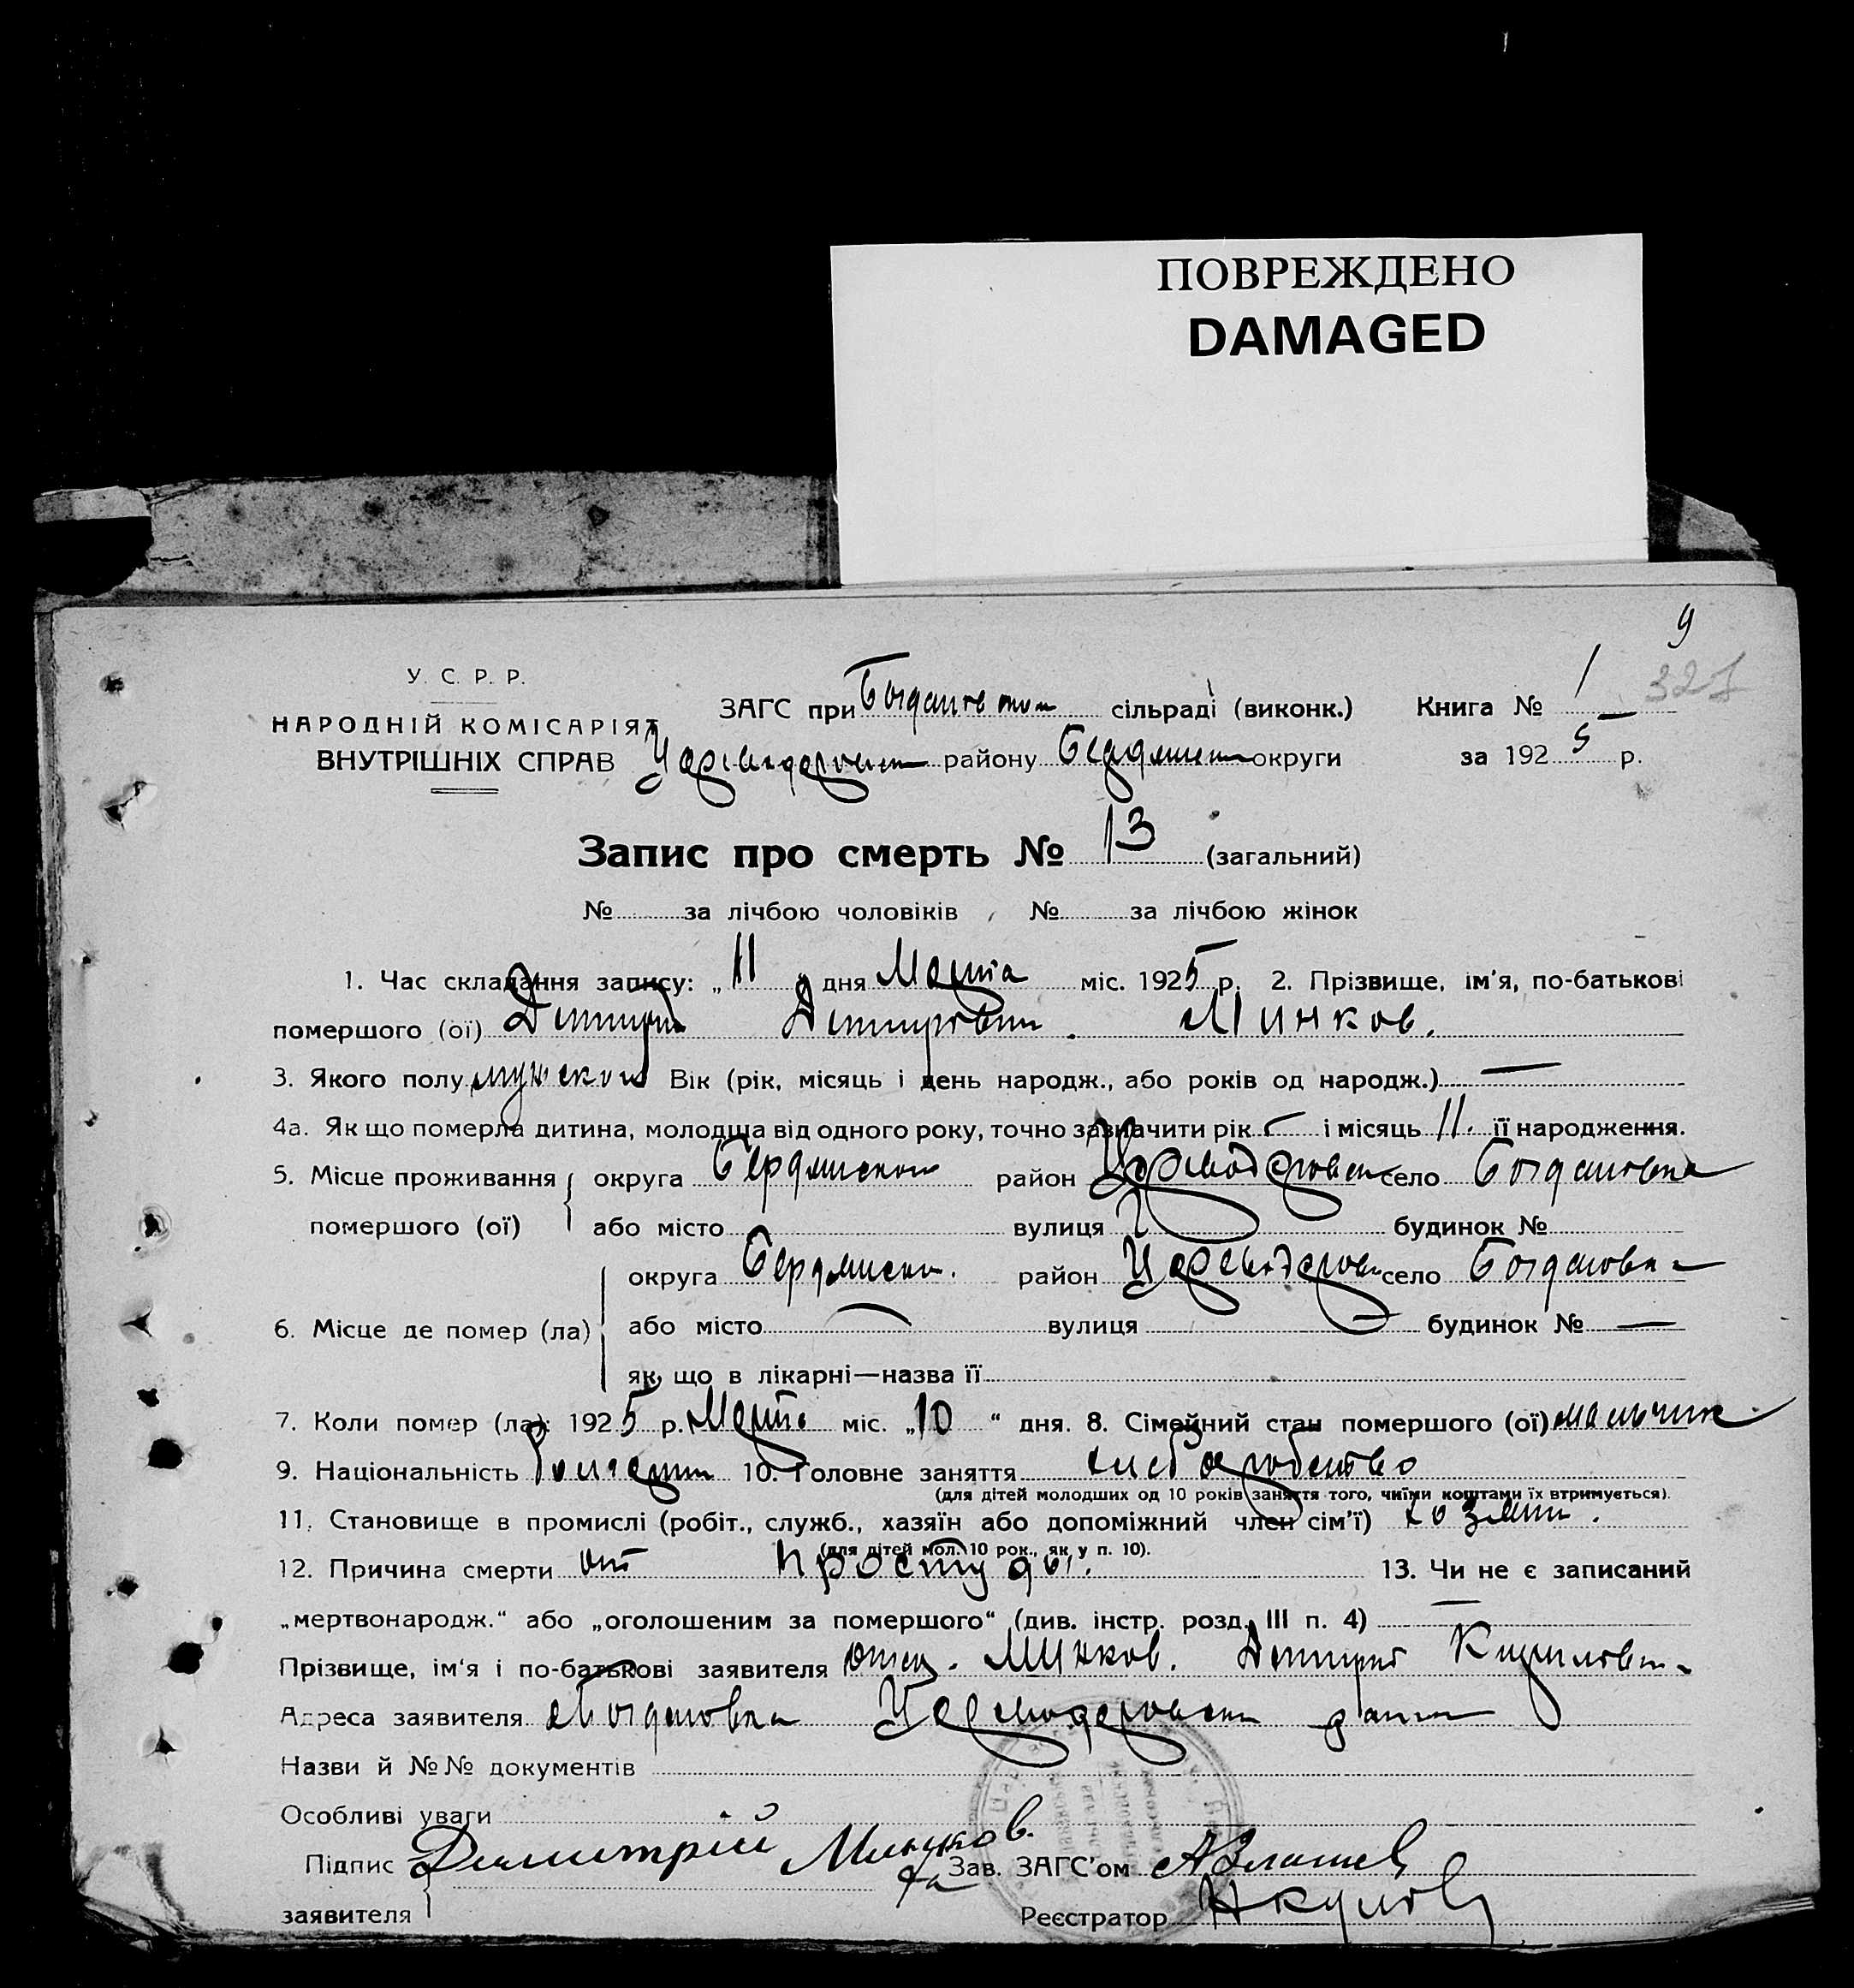 ПОВРЕЖДЕНО
DAMAGED
9
327
У. С. Р. Р.
НАРОДНІЙ КОМІСАРІЯТ
ВНУТРІШНІХ СПРАВ
ЗАГС при Богдановском сільраді (виконк.) Книга № 1
району Бердянск округи за 1925 р.
Запис про смерть № 13 (загальний)
№ за лічбою чоловіків, № за лічбою жінок
1. Час складання запису: „11 дня Марта міс. 1925 р. 2. Прізвище, ім'я, по-батькові
помершого (ої) Дмитрий Дмитрович. Минков.
3. Якого полу мужской Вік (рік, місяць і день народж., або років од народж.) —
4а. Як що померла дитина, молодша від одного року, точно зазначити рік — і місяць 11. її народження.
5. Місце проживання округа Бердянском район село Богдановка
помершого (ої) або місто вулиця будинок №
округа Бердянск. район село Богдановка
6. Місце де помер (ла) або місто — вулиця — будинок № —
як що в лікарні—назва її
7. Коли помер (ла): 1925 р. Марта міс. „10 “ дня. 8. Сімейний стан помершого (ої) мальчик
9. Національність болгарин 10. Головне заняття хлебаробство
(для дітей молодших од 10 років заняття того, чиїми коштами їх втримується).
11. Становище в промислі (робіт., служб., хазяїн або допоміжний член сім'ї) хозяин.
(для дітей мол. 10 рок., як у п. 10).
12. Причина смерти от простуды. 13. Чи не є записаний
„мертвонародж.“ або „оголошеним за помершого“ (див. інстр. розд. III п. 4) —
Прізвище, ім'я і по-батькові заявителя отец. Минков. Дмитрий Кирилович
Адреса заявителя Богдановка
Назви й №№ документів
Особливі уваги
Підпис Димитрій Минков. Зав. ЗАГС'ом
заявителя Реєстратор